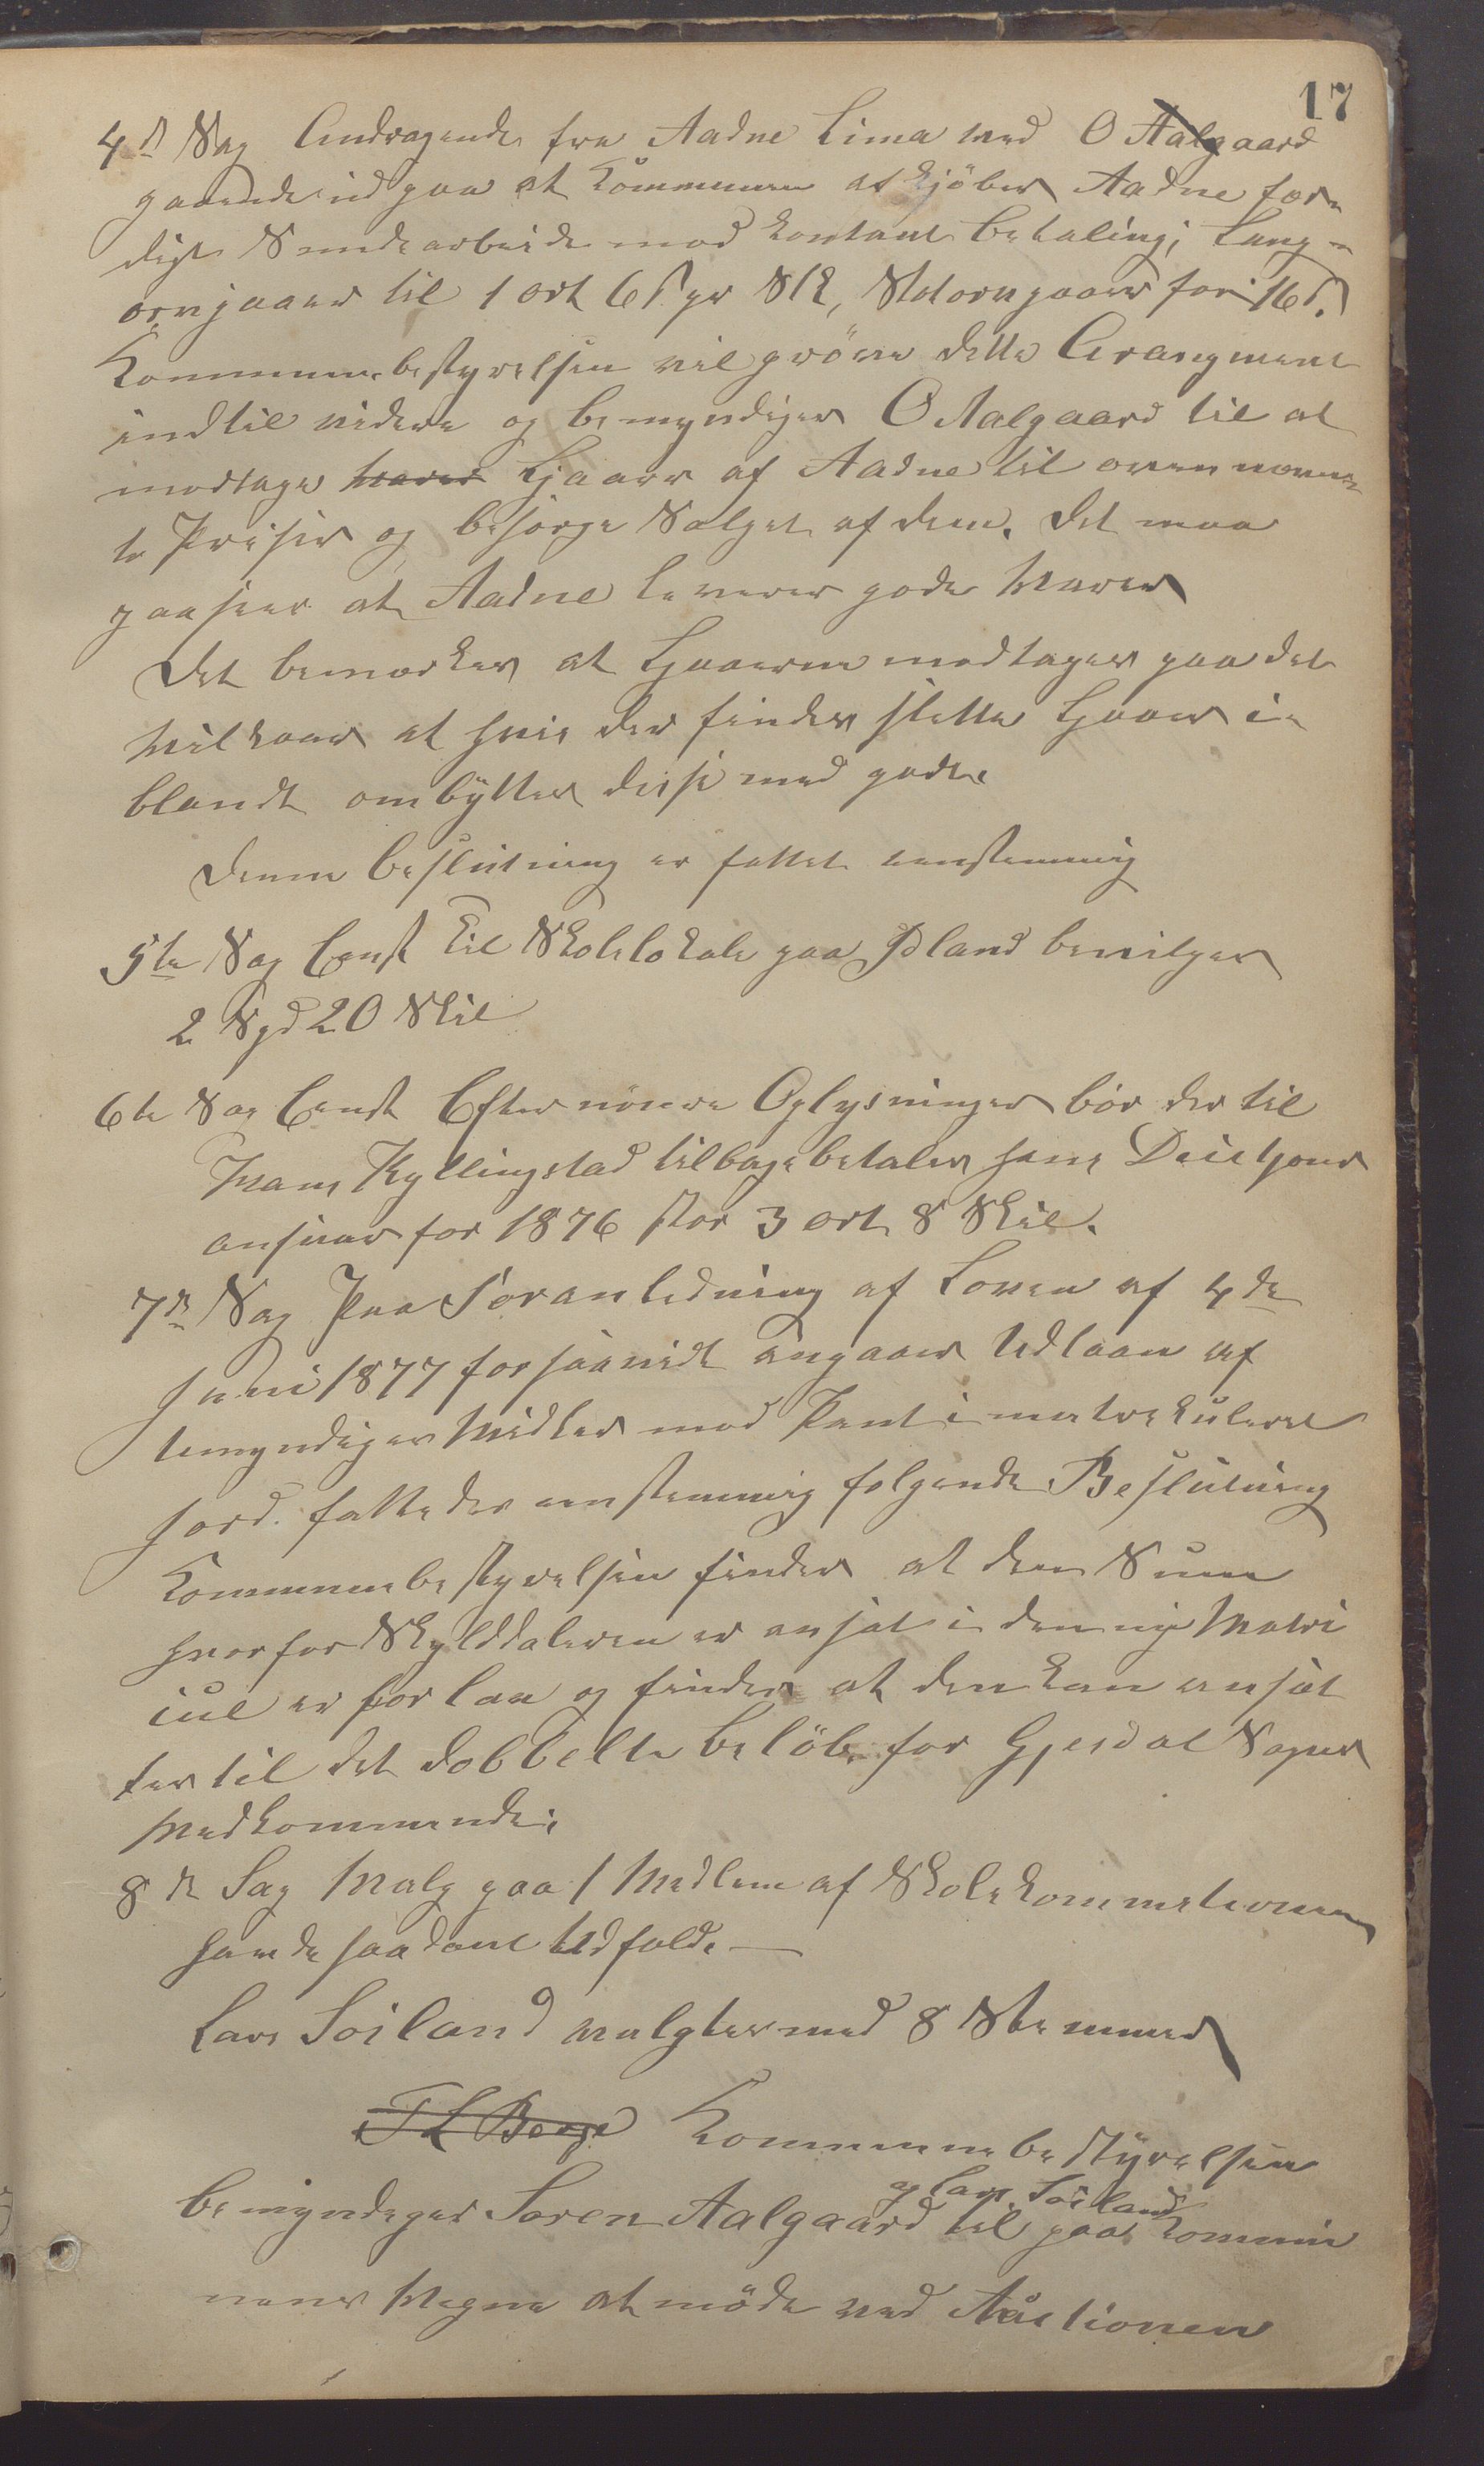 17
4d Sag Andragende fra Aadne Lima ved O Aalgaard
gaaende ud paa at Kommunen afkjöber Aadne fær-
digt Smidearbeide mod kontant Betaling; Lang-
orvsjaaer til 1 ort 6 s. pr Stk, Stutorvsjaaer for 16 s.
Kommunebestyrelsen vil pröve dette Arangment
indtil videre og bemyndiger O Aalgaard til at
modtage Varer Ljaaer af Aadne til ovennævn-
te Priser og besörge Salget af dem. Det maa
paasees at Aadne leverer gode Varer
Det bemærkes at Ljaaerne modtages paa det
Vilkaar at hvis der findes slette Ljaaer i-
blandt ombyttes disse med gode.
Denne Beslutning er fattet eenstemmig
5te Sag Til Skolelokale paa Ydland bevilges
2 Spd 20 Skil
6te Sag Efter nöiere Oplysninger bör der til
Hans Kyllingstad tilbagebetales hans
for 1876 stor 3 ort 8 Skil.
7de Sag Paa Foranledning af Loven af 4de
Juni 1877 forsaavidt angaaer Udlaan af
Umyndiges Midler mod Pant i matrikuleret
Jord. fattedes eenstemmig folgende Beslutning
Kommunebestyrelsen finder at den Sum
hvorfor Skylddaleren er ansat i den ny Matri
kul er for lav og finder at den kan ansæt
tes til det dobbelte Belöb for Gjesdal Sogns
Vedkommende.
8de Sag Valg paa 1 Medlem af Skolekommisionen
havde saadant Udfald. —
Lars Soiland valgtes med 8 Stemmer
Kommunebestyrelsen
og Lars Soiland
bemyndiger Soren Aalgaard til paa Kommu
nens Vegne at möde ved Auctionen